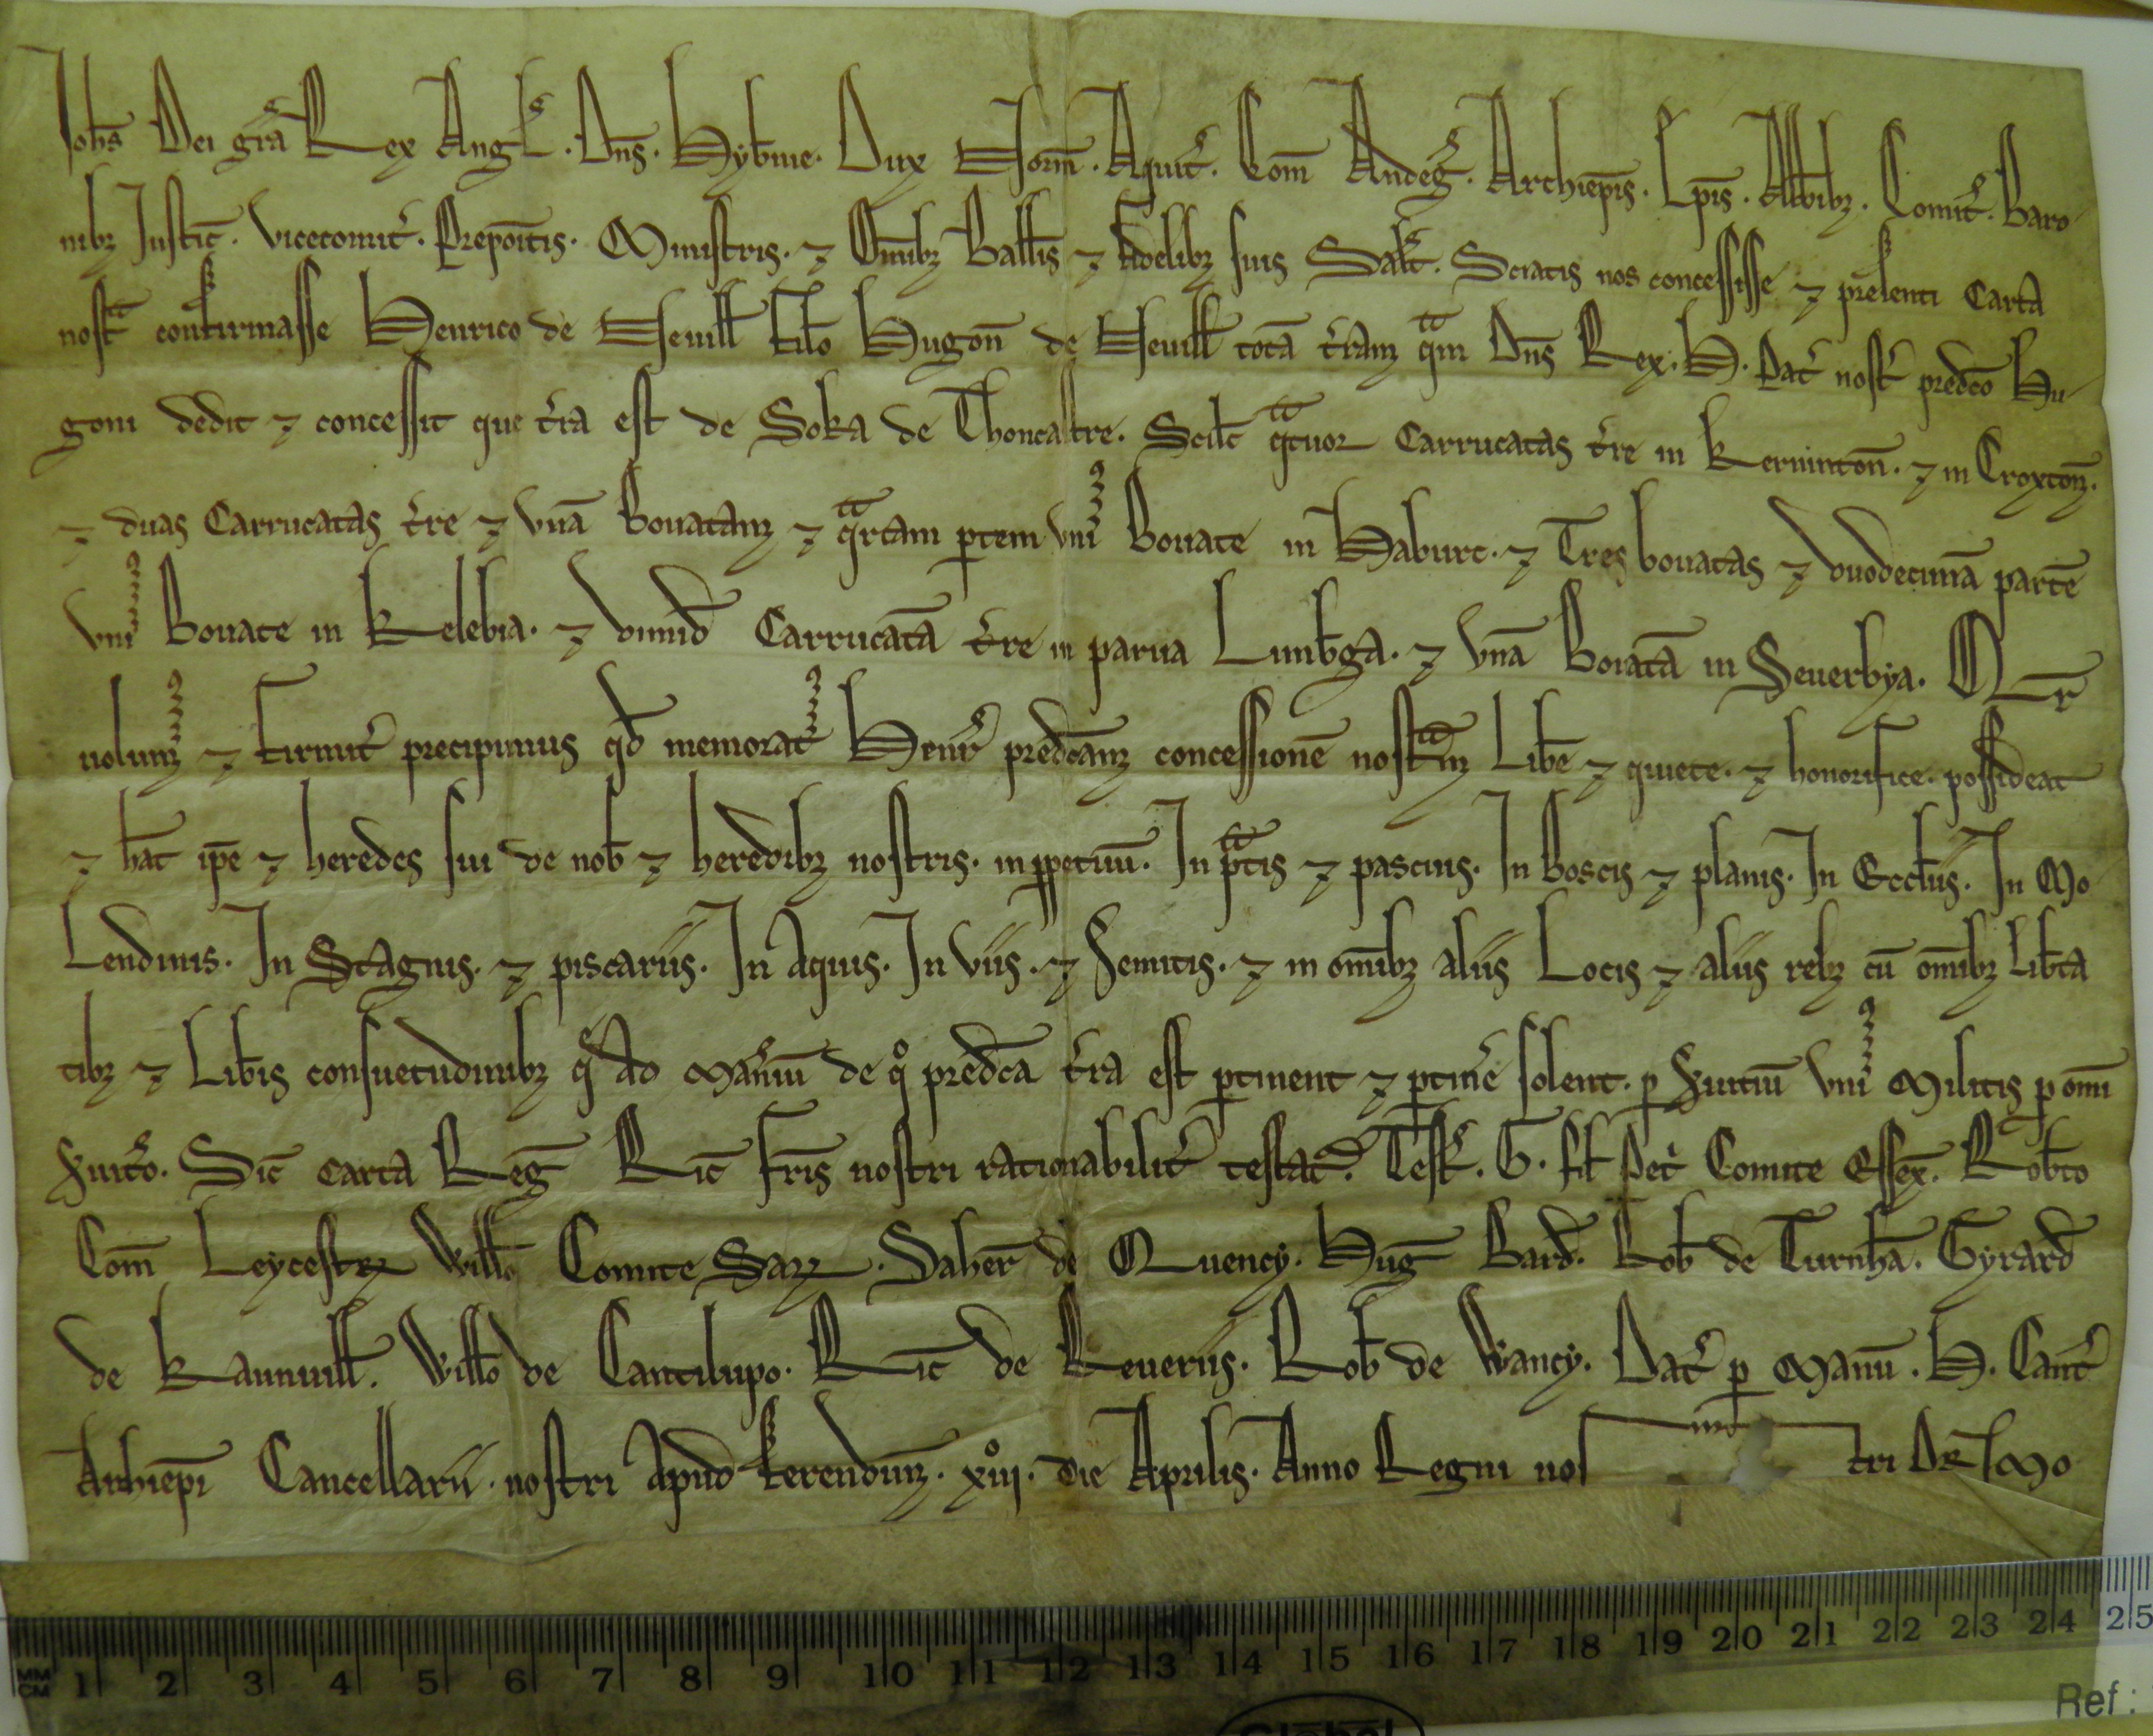 Joh̄s Dei gr̄a Rex Angl̄. Dn̄s. Hyb̄nie. Dux Norm̄. Aquit̄. Com̄ Andeḡ. Archiep̄is. Ep̄is. Abb̄ibꝫ. Comit̄. Baro
nibꝫ Justic̄. vicecomit̄. Prepo̅itis. Ministris. ⁊ Om̄ibꝫ Ball̄is ⁊ fidelibꝫ suis Salt̄. Sciatis nos concessisse ⁊ presenti Carta
nost̄ confirmasse Henrico de Neuill̄ filo̅ Hugon̄ de Neuill̄ totā t̄ram qm̄ Dn̄s Rex. H. Pat̄ nost̄ predc̄o Hu
goni dedit ⁊ concessit que t̄ra est de Soka de Thoncastre. Scilc̄ qtuor Carrucatas t̄re in Kernintoñ. ⁊ in Croxton.
⁊ duas Carrucatas t̄re ⁊ vnā Bouatam ⁊ qrtam ꝑtem vniꝰ Bouate in Haburc. ⁊ Tres bouatas ⁊ duodecimā partē
vniꝰ Bouate in Kelebia. ⁊ dimid̄ Carrucatā t̄re in parua Limb̄ga. ⁊ vnā Bouatā in Seuerbya. Qr̄
uolumꝰ ⁊ firmit̄ precipimus qd̄ memoratꝰ Henr̄ predc̄am concessionē nostm̄ Lib̄e ⁊ quiete. ⁊ honorifice. possideat
⁊ h̄at ip̄e ⁊ heredes sui de nob̄ ⁊ heredibꝫ nostris. inꝑpetuū. In ptis ⁊ pascuis. In Boscis ⁊ planis. In Eccl̄iis. In Mo
Lendinis. In Stagnis. ⁊ piscariis. In Aquis. In viis. ⁊ Semitis. ⁊ in om̄ibꝫ aliis Locis ⁊ aliis rebꝫ cū om̄ibꝫ Lib̄ta
tibꝫ ⁊ Lib̄is consuetudinibꝫ q̄ Ad Man̄iū de qͦ predc̄a t̄ra est ꝑtinent ⁊ ꝑtinē solent. ꝑ S̄uitiū vniꝰ Militis ꝑ om̄i
S̄uit̄o. Sic̄ carta Reḡ Ric̄ fr̄is nostri rationabilit̄ testat̄. Test̄. G. fil̄ Pet̄ Comite Essex̄. Rob̄to
Com̄ Leycestꝝ Will̄o Comite Saꝝ. Saher̄ de Quency. Hug̅ Bard̄. Rob̄ de Turnh̄a. Gyrard̄
de Kanuill̄. Will̄o de Cantilupo. Ric̄ de Reueriis. Rob̄ de Wancy. Dat̄ ꝑ Manū. H. Cant̄
Archiep̄i Cancellarii. nostri Apud kerendun. xiijͦ. die Aprilis. Anno Regni nos tri DE Imo